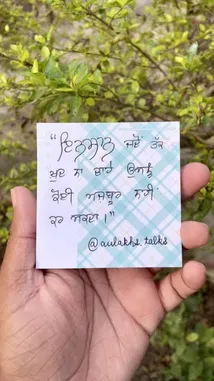 “ਇਨਸਾਨ ਜਦੋਂ ਤੱਕ
ਖੁਦ ਨਾ ਚਾਹੇ ਉਸਨੂੰ
ਕੋਈ ਮਜਬੂਰ ਨਹੀਂ
ਕਰ ਸਕਦਾ।”
@aulakhs_talks